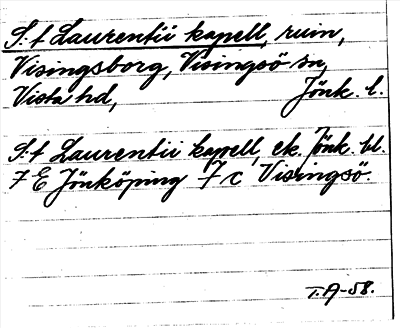 S:t Laurentii kapell, ruin,
Visingsborg, Visingsö sn,
Vista hd, Jönk. l.
S:t Laurentii kapell, ek. Jönk. bl.
7 E Jönköping 7 c Visingsö.
T.A-58.